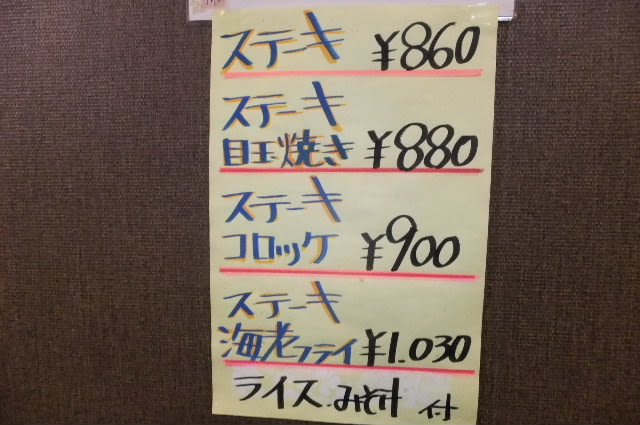 ステーキ ¥860
ステーキ
目玉焼き ¥880
ステーキ
コロッケ ¥900
ステーキ
海老フライ ¥1.030
ライス.みそ汁 付